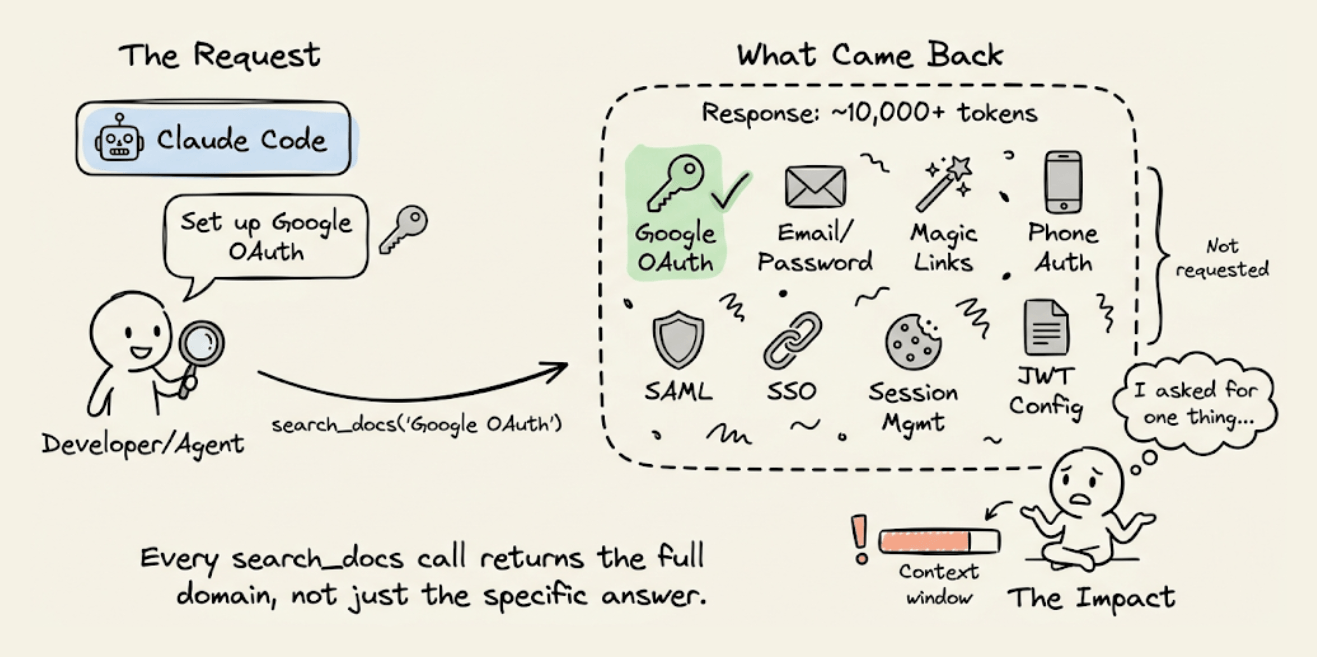 The Request
Claude Code
Set up Google
OAuth
Developer/Agent
search_docs('Google OAuth')
What Came Back
Response: ~10,000+ tokens
Google
OAuth
Email/
Password
Magic
Links
Phone
Auth
Not
requested
SAML
SSO
Session
Mgmt
JWT
Config
I asked for
one thing...
Every search_docs call returns the full
domain, not just the specific answer.
!
Context
window
The Impact